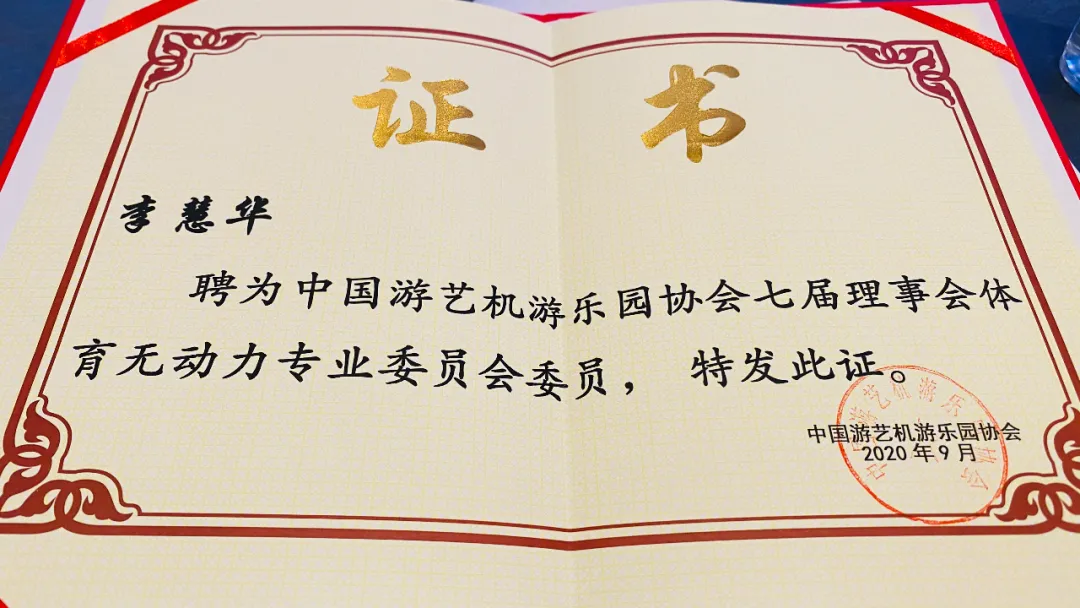 证书
李慧华
聘为中国游艺机游乐园协会七届理事会体
育无动力专业委员会委员，特发此证。
中国游艺机游乐园协会
2020年9月
中国游艺机游乐园协会